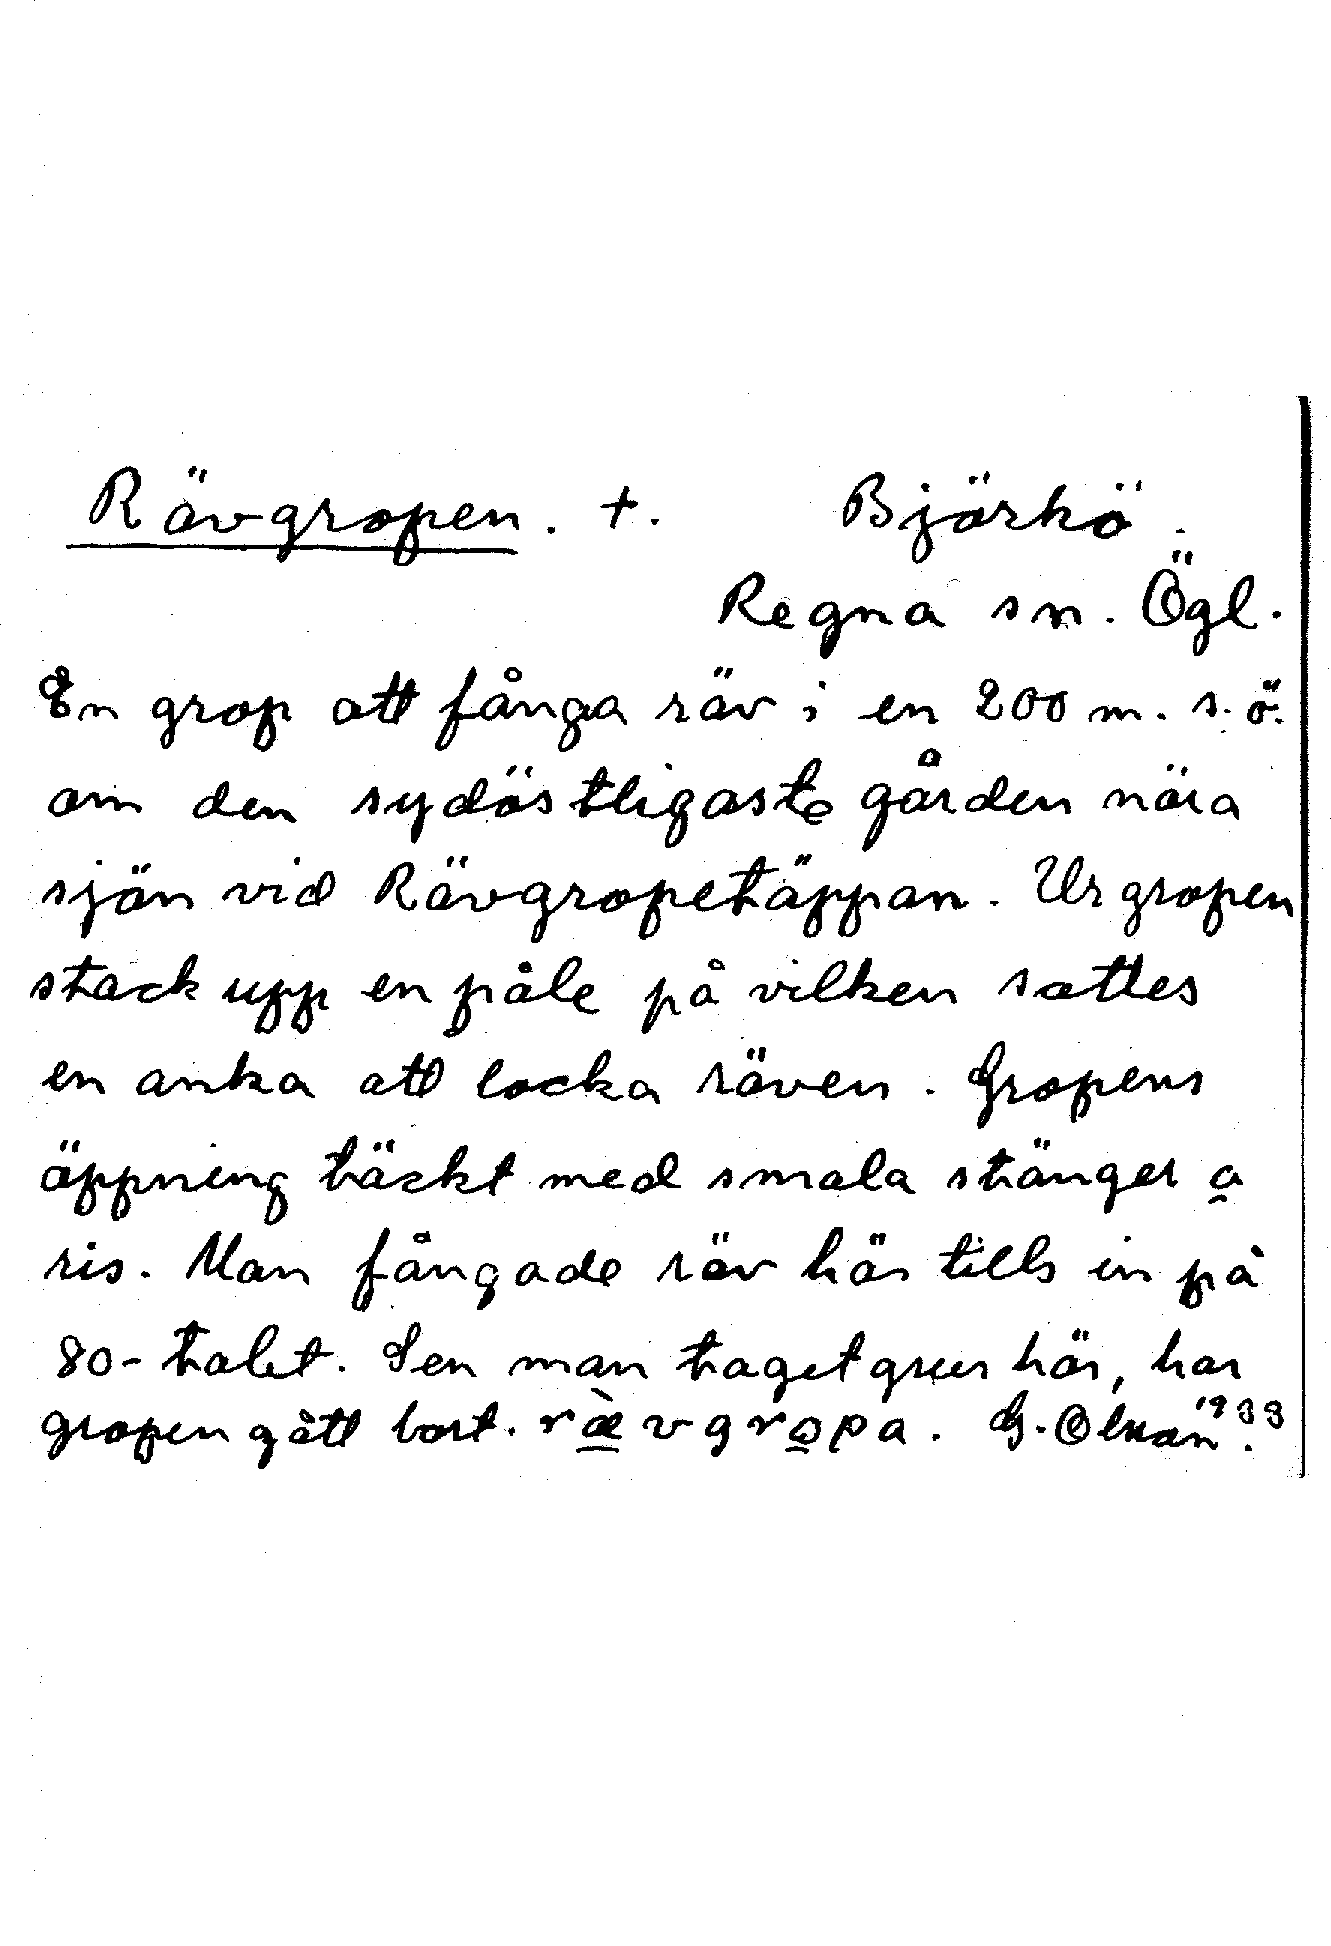 Rävgropen. +. Björkö.
Regna sn. Ögl.
En grop att fånga räv i en 200 m. s. ö.
om den sydöstligaste gården nära
sjön vid Rävgropetäppan. Ur gropen
stack upp en påle på vilken sattes
en anka att locka räven. Gropens
öppning täckt med smala stänger a
ris. Man fångade räv här tills in på
80-talet. Sen man taget grus här, har
gropen gått bort. ræ̀vgropa. G. Olsson 1933.